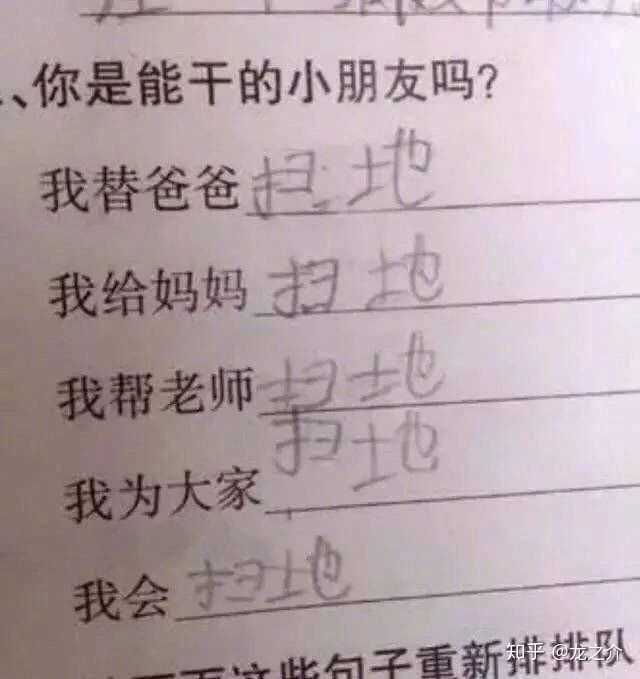 、你是能干的小朋友吗?
我替爸爸扫地
我给妈妈扫地
我帮老师扫地
我为大家扫地
我会扫地
这些句子重新排排队
知乎 @龙之介